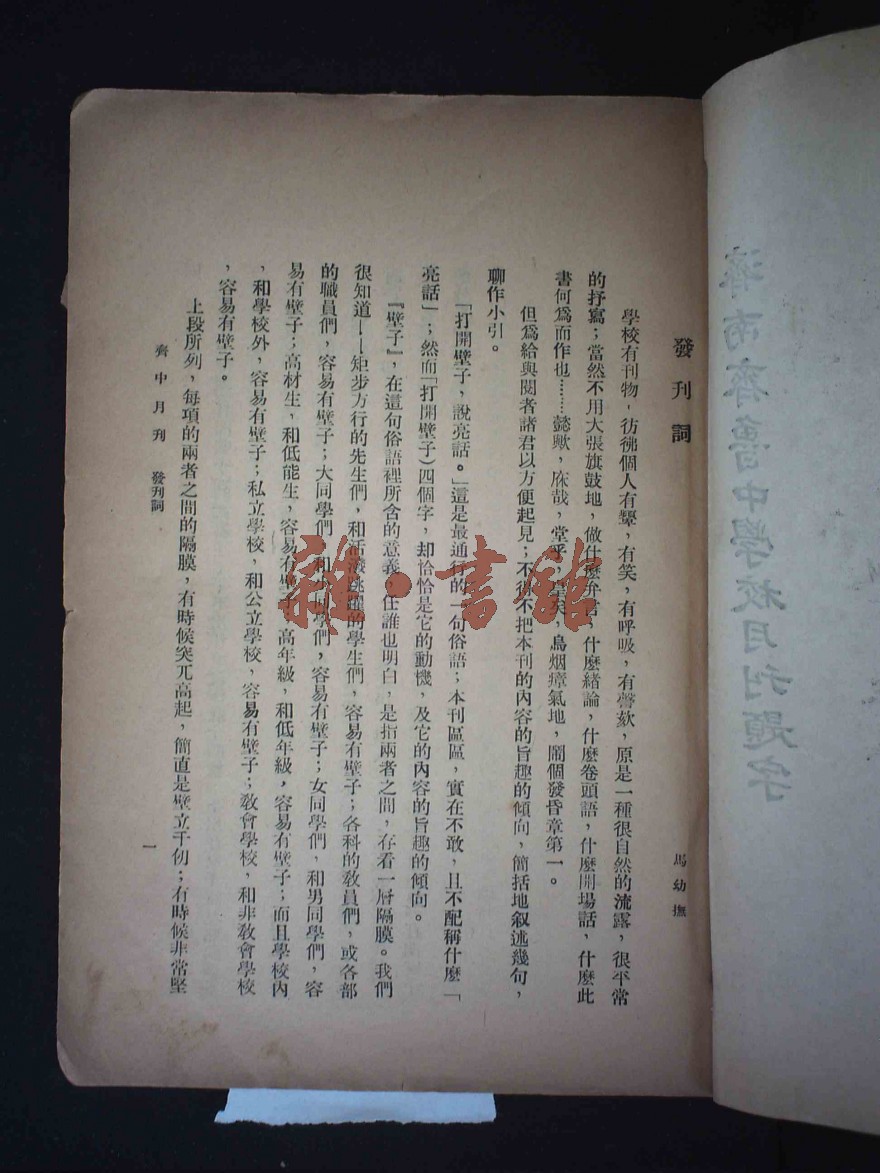 發刊詞
馬幼撫
學校有刊物，彷彿個人有顰，有笑，有呼吸，有謦欬，原是一種很自然的流露，很平常
的抒寫；當然不用大張旗鼓地，做什麼弁言，什麼緒論，什麼卷頭語，什麼開場話，什麼此
書何爲而作也……懿歟，庥哉，堂乎，皇矣，烏烟瘴氣地，鬧個發昏章第一。
但爲給與閱者諸君以方便起見；不得不把本刊的內容的旨趣的傾向，簡括地叙述幾句，
聊作小引。
「打開壁子，說亮話。」這是最通行的一句俗語；本刊區區，實在不敢，且不配稱什麼「
亮話」；然而「打開壁子）四個字，却恰恰是它的動機，及它的內容的旨趣的傾向。
『壁子』，在這句俗語裡所含的意義，任誰也明白，是指兩者之間，存着一層隔膜。我們
很知道——矩步方行的先生們，和活潑跳躍的學生們，容易有壁子；各科的敎員們，或各部
的職員們，容易有壁子；大同學們，和小同學們，容易有壁子；女同學們，和男同學們，容
易有壁子；高材生，和低能生，容易有壁子；高年級，和低年級，容易有壁子；而且學校內
，和學校外，容易有壁子；私立學校，和公立學校，容易有壁子；敎會學校，和非敎會學校
，容易有壁子。
上段所列，每項的兩者之間的隔膜，有時候突兀高起，簡直是壁立千仞；有時候非常堅
齊中月刊 發刊詞
一
濟南齊魯中學校月刊題字
雜·書館